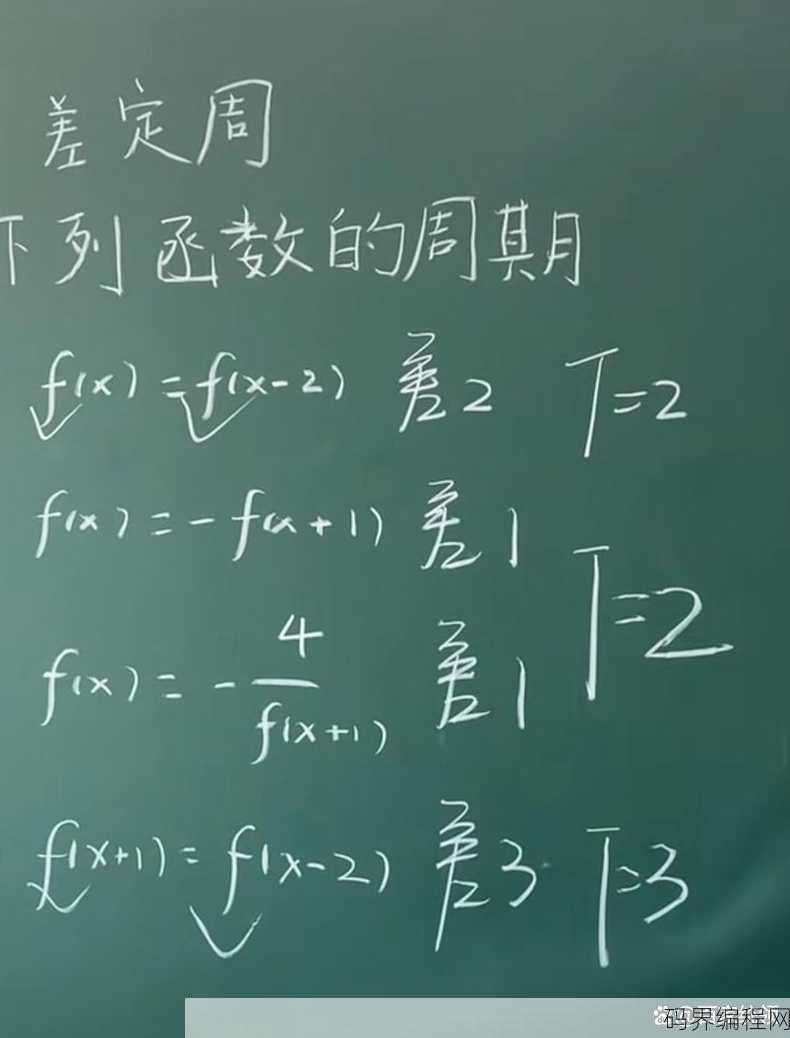 差定周
下列函数的周期
f(x)=f(x-2) 差2 T=2
f(x)=-f(x+1) 差1
T=2
f(x)=-4/f(x+1) 差1
f(x+1)=f(x-2) 差3 T=3
码界编程网